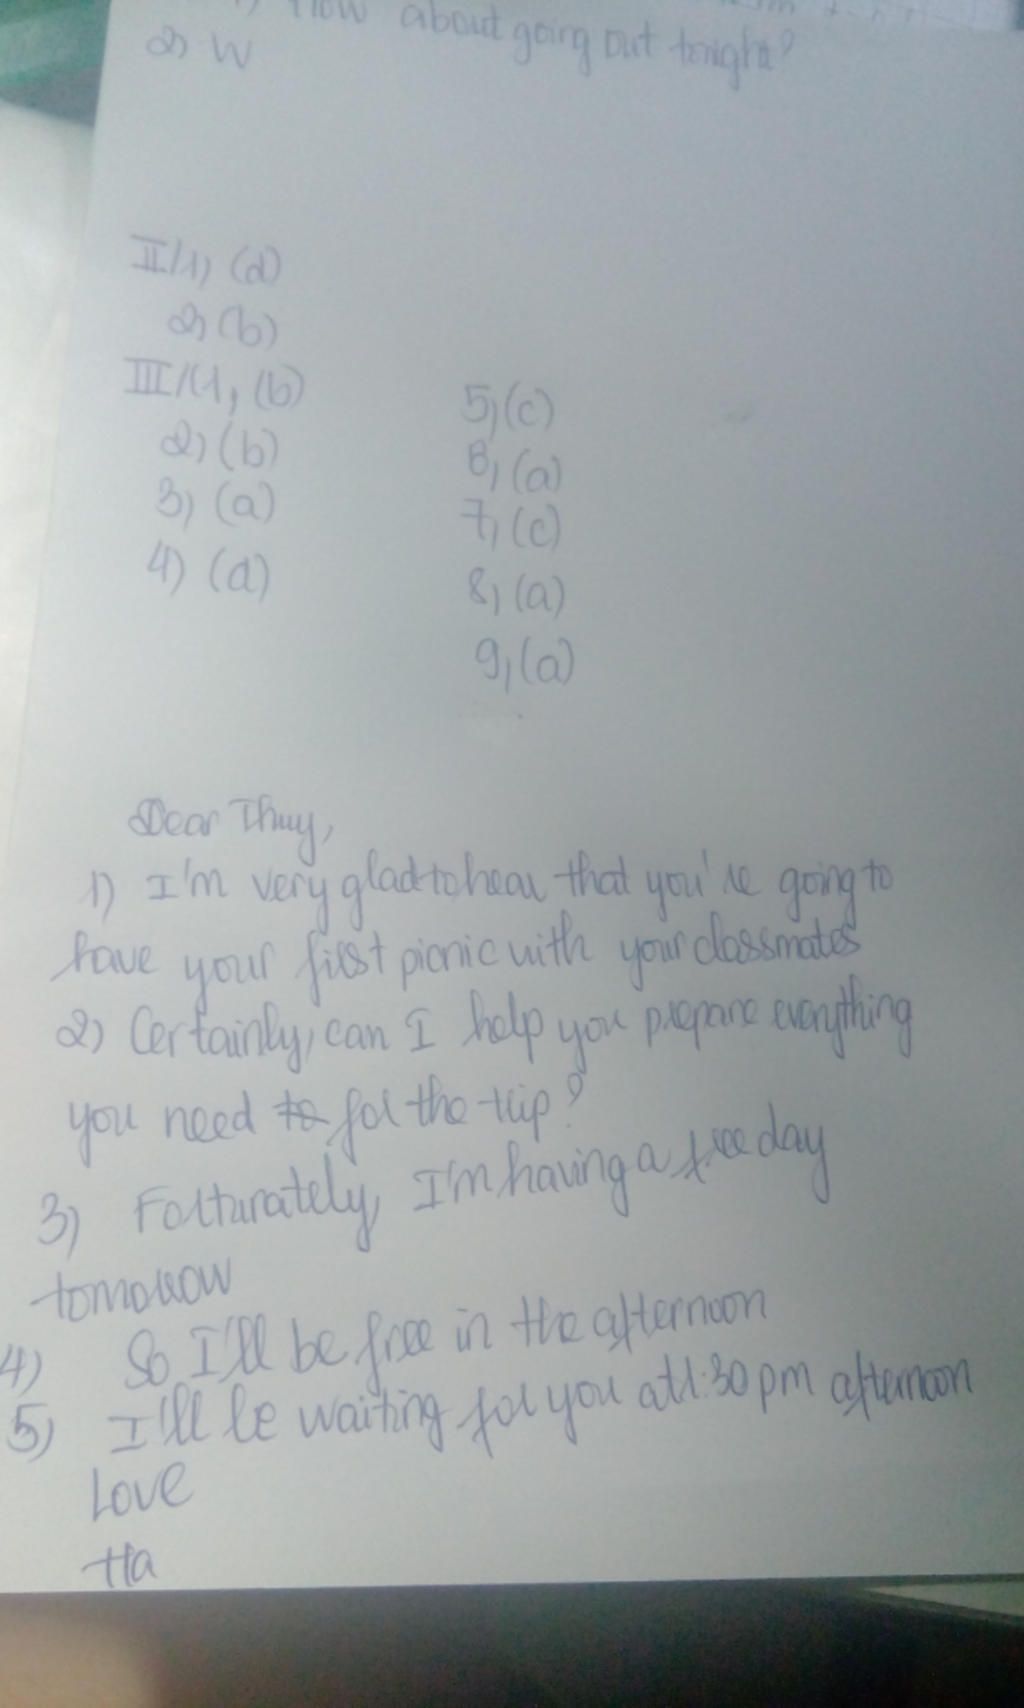 How about going out tonight?
2) W
II/1) (d)
2) (b)
III/(1, (b)
2) (b)
3) (a)
4) (d)
5) (c)
6) (a)
7) (c)
8) (a)
9) (a)
Dear Thuy,
1) I'm very glad to hear that you're going to
have your first picnic with your classmates
2) Certainly, can I help you prepare everything
you need to for the trip?
3) Forturately, I'm having a free day
tomorrow
4) So I'll be free in the afternoon
5) I'll be waiting for you at 1:30 pm afternoon
Love
Ha